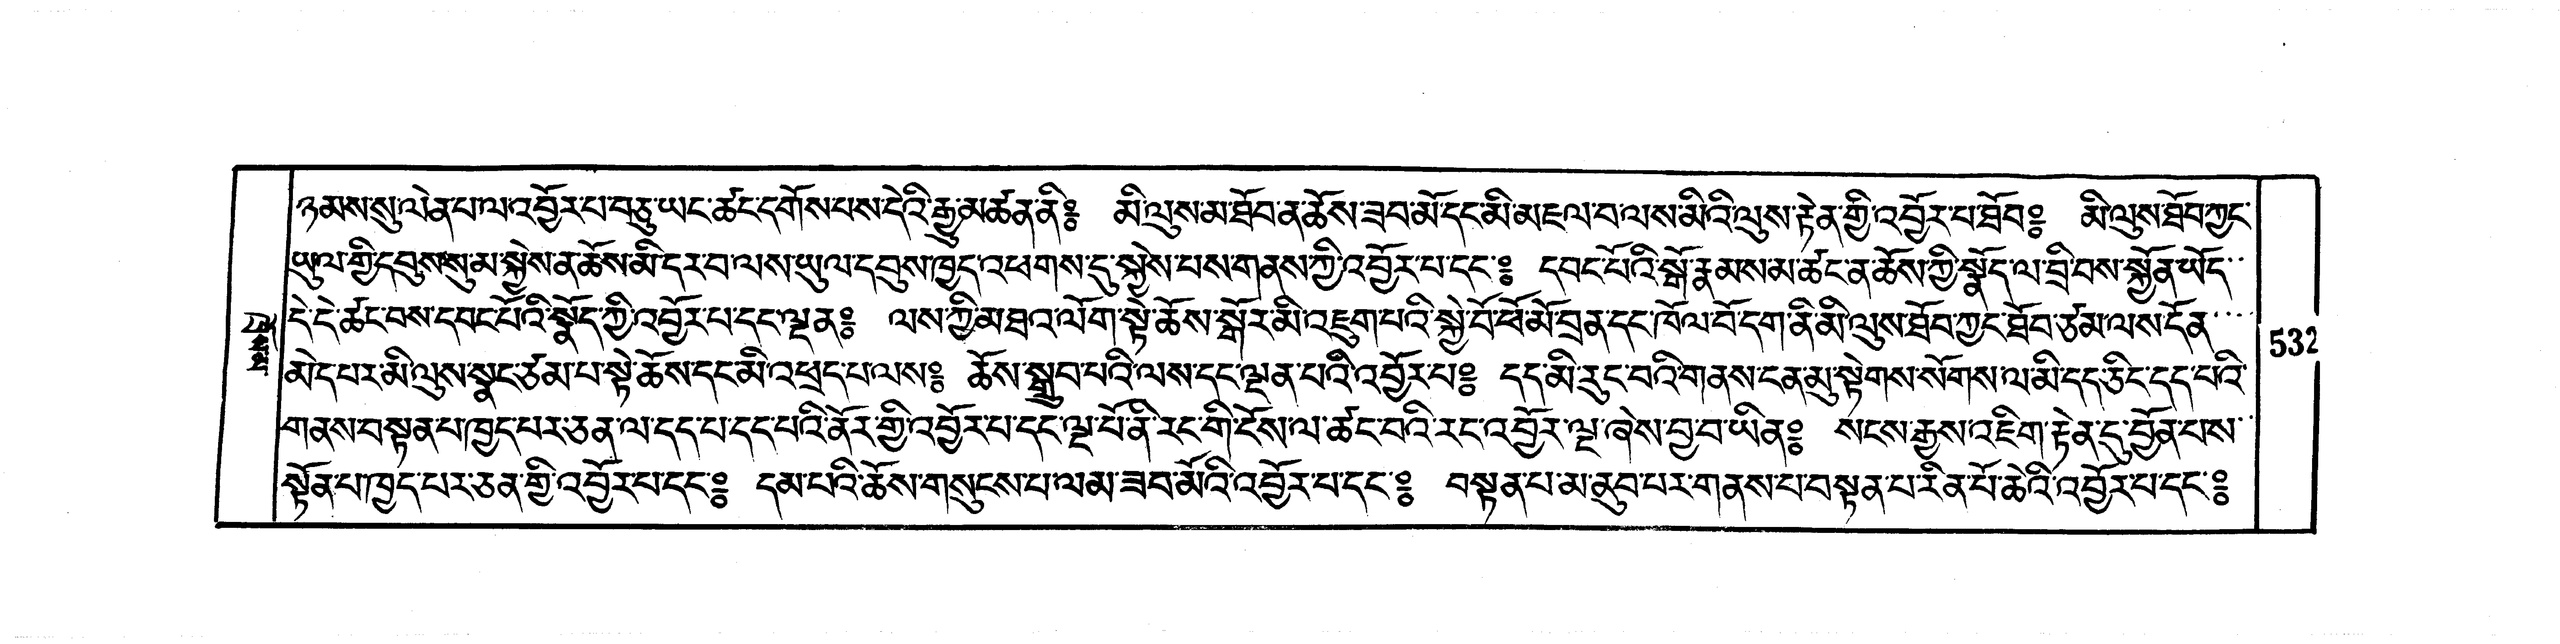 ཉམས་སུ་ལེན་པ་ལ་འབྱོར་པ་བཅུ་ཡང་ཚང་དགོས་པས་དེའི་རྒྱུ་མཚན་ནི༔ མི་ལུས་མ་ཐོབ་ན་ཆོས་ཟབ་མོ་དང་མི་མཇལ་བ་ལས་མིའི་ལུས་རྟེན་གྱི་འབྱོར་པ་ཐོབ༔ མི་ལུས་ཐོབ་ཀྱང་
ཡུལ་གྱི་དབུས་སུ་མ་སྐྱེས་ན་ཆོས་མི་དར་བ་ལས་ཡུལ་དབུས་ཁྱད་འཕགས་དུ་སྐྱེས་པས་གནས་ཀྱི་འབྱོར་པ་དང་༔ དབང་པོའི་སྒོ་རྣམས་མ་ཚང་ན་ཆོས་ཀྱི་སྣོད་ལ་བྲི་བས་སྐྱོན་ཡོད་
དེ་དེ་ཚང་བས་དབང་པོའི་སྣོད་ཀྱི་འབྱོར་པ་དང་ལྡན༔ ལས་ཀྱི་མཐའ་ལོག་སྟེ་ཆོས་སྒོར་མི་འཇུག་པའི་སྐྱེ་བོ་ཕོ་མོ་བྲན་དང་ཁོལ་བོ་དག་ནི་མི་ལུས་ཐོབ་ཀྱང་ཐོབ་ཙམ་ལས་དོན་
མེད་པར་མི་ལུས་སྣང་ཙམ་པ་སྟེ་ཆོས་དང་མི་འཕྲད་པ་ལས༔ ཆོས་སྒྲུབ་པའི་ལས་དང་ལྡན་པའི་འབྱོར་པ༔ དད་མི་རུང་བའི་གནས་ངན་མུ་སྟེགས་སོགས་ལ་མི་དད་ཅིང་དད་པའི་
གནས་བསྟན་པ་ཁྱད་པར་ཅན་ལ་དད་པ་དད་པའི་ནོར་གྱི་འབྱོར་པ་དང་ལྔ་པོ་ནི་རང་གི་ངོས་ལ་ཚང་བའི་རང་འབྱོར་ལྔ་ཞེས་བྱ་བ་ཡིན༔ སངས་རྒྱས་འཇིག་རྟེན་དུ་བྱོན་པས་
སྟོན་པ་ཁྱད་པར་ཅན་གྱི་འབྱོར་པ་དང་༔ དམ་པའི་ཆོས་གསུངས་པ་ལམ་ཟབ་མོའི་འབྱོར་པ་དང་༔ བསྟན་པ་མ་ནུབ་པར་གནས་པ་བསྟན་པ་རིན་པོ་ཆེའི་འབྱོར་པ་དང་༔
532